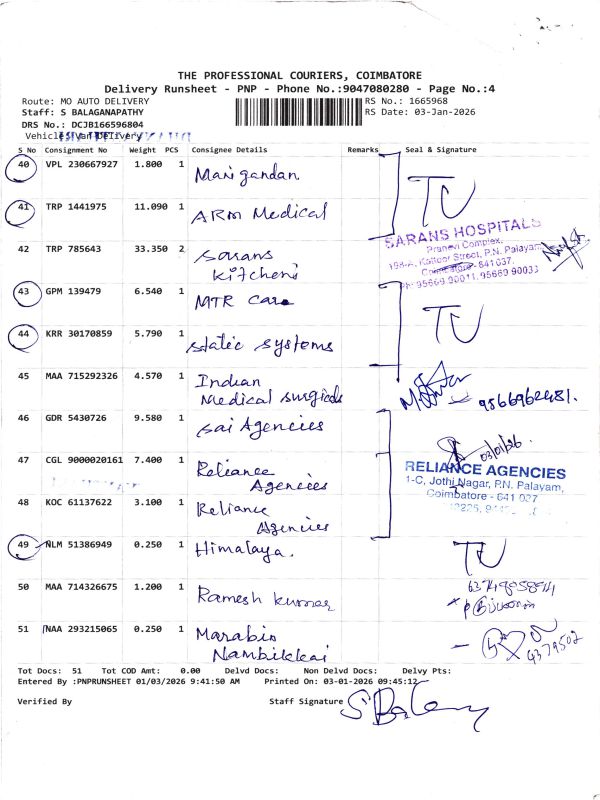 THE PROFESSIONAL COURIERS, COIMBATORE
Delivery Runsheet - PNP - Phone No.:9047080280 - Page No.:4
Route: MO AUTO DELIVERY
RS No.: 1665968
Staff: S BALAGANAPATHY
RS Date: 03-Jan-2026
DRS No.: DCJB166596804
Vehicle: Van Delivery
S No Consignment No Weight PCS Consignee Details Remarks Seal & Signature
40 VPL 230667927 1.800 1 Marigandan
TU
41 TRP 1441975 11.090 1 ARM Medical
SARANS HOSPITALS
Pranavi Complex,
198-A, Kattoor Street, P.N. Palayam,
Coimbatore - 641 037.
Ph: 95669 00011, 95669 90033
42 TRP 785643 33.350 2 Sarans
Kitchens
43 GPM 139479 6.540 1 MTR Care
TU
44 KRR 30170859 5.790 1 Static Systems
45 MAA 715292326 4.570 1 Indian
Medical surgicals
46 GDR 5430726 9.580 1 Sai Agencies
03/01/26.
47 CGL 9000020161 7.400 1 Reliance
Agencies
RELIANCE AGENCIES
1-C, Jothi Nagar, P.N. Palayam,
Coimbatore - 641 037
48 KOC 61137622 3.100 1 Reliance
Agencies
49 NLM 51386949 0.250 1 Himalaya.
TU
50 MAA 714326675 1.200 1 Ramesh kumar
51 NAA 293215065 0.250 1 Marabin
Nambikkai
Tot Docs: 51 Tot COD Amt: 0.00 Delvd Docs: Non Delvd Docs: Delvy Pts:
Entered By :PNPRUNSHEET 01/03/2026 9:41:50 AM Printed On: 03-01-2026 09:45:12
Verified By Staff Signature